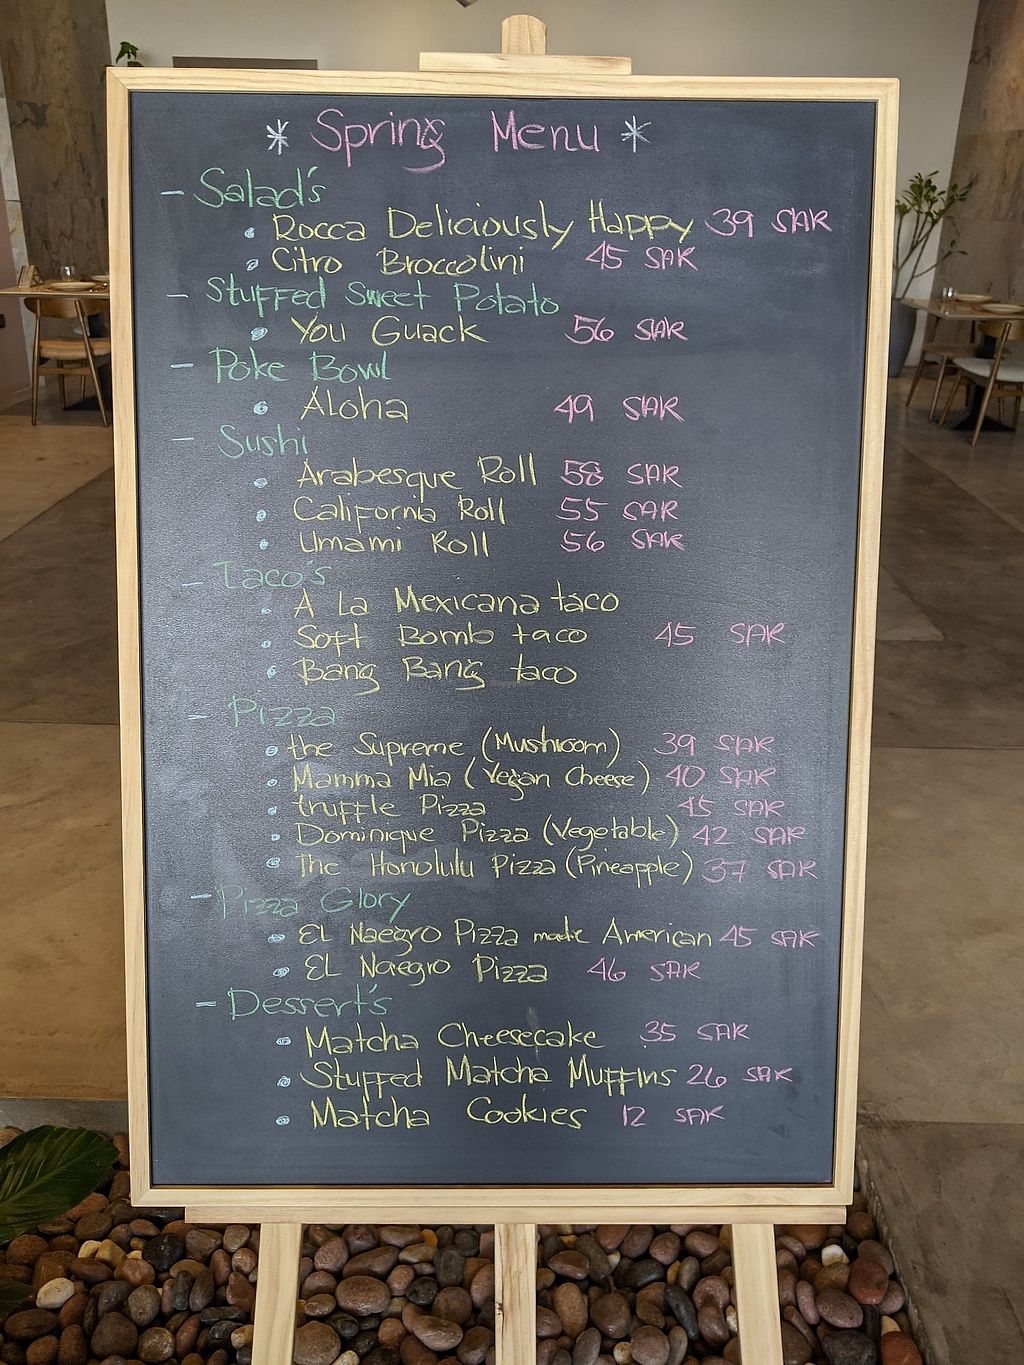 * Spring Menu *
- Salad's
• Rocca Deliciously Happy 39 SAR
• Citro Broccolini 45 SAR
- Stuffed Sweet Potato
• You Guack 56 SAR
- Poke Bowl
• Aloha 49 SAR
- Sushi
• Arabesque Roll 58 SAR
• California Roll 55 SAR
• Umami Roll 56 SAR
- Taco's
• A La Mexicana taco
• Soft Bomb taco 45 SAR
• Bang Bang taco
- Pizza
• the Supreme (Mushroom) 39 SAR
• Mamma Mia (Vegan Cheese) 40 SAR
• truffle Pizza 45 SAR
• Dominique Pizza (Vegetable) 42 SAR
• The Honolulu Pizza (Pineapple) 37 SAR
- Pizza Glory
• EL Naegro Pizza made American 45 SAR
• EL Naegro Pizza 46 SAR
- Dessert's
• Matcha Cheesecake 35 SAR
• Stuffed Matcha Muffins 26 SAR
• Matcha Cookies 12 SAR